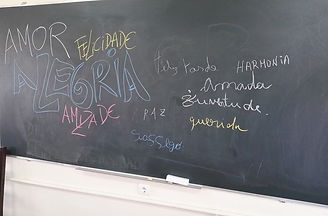 AMOR
FELICIDADE
ALEGRIA
AMIZADE
Feliz tarde HARMONIA
Amada
Juventude
PAZ
querida
Sossego